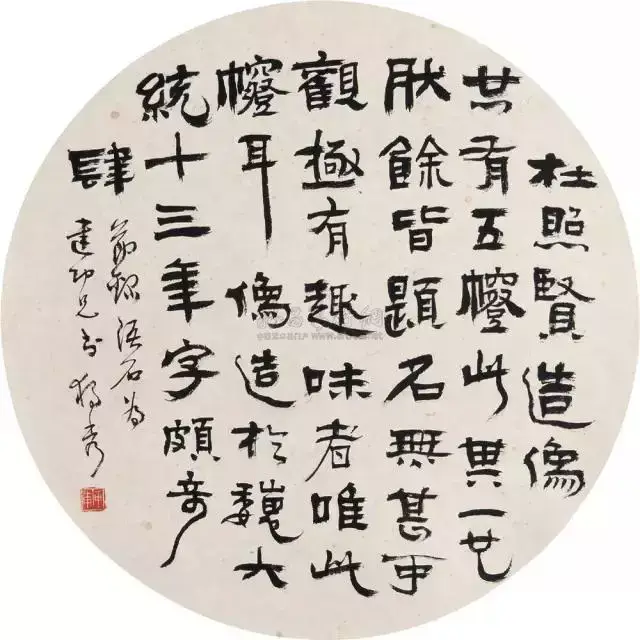 杜照賢造像
共有五此其一也
肰餘皆題名無甚可
觀極有趣味者唯此
耳像造於魏大
統十三年字頗奇
肆
節録語石為
建功兄書